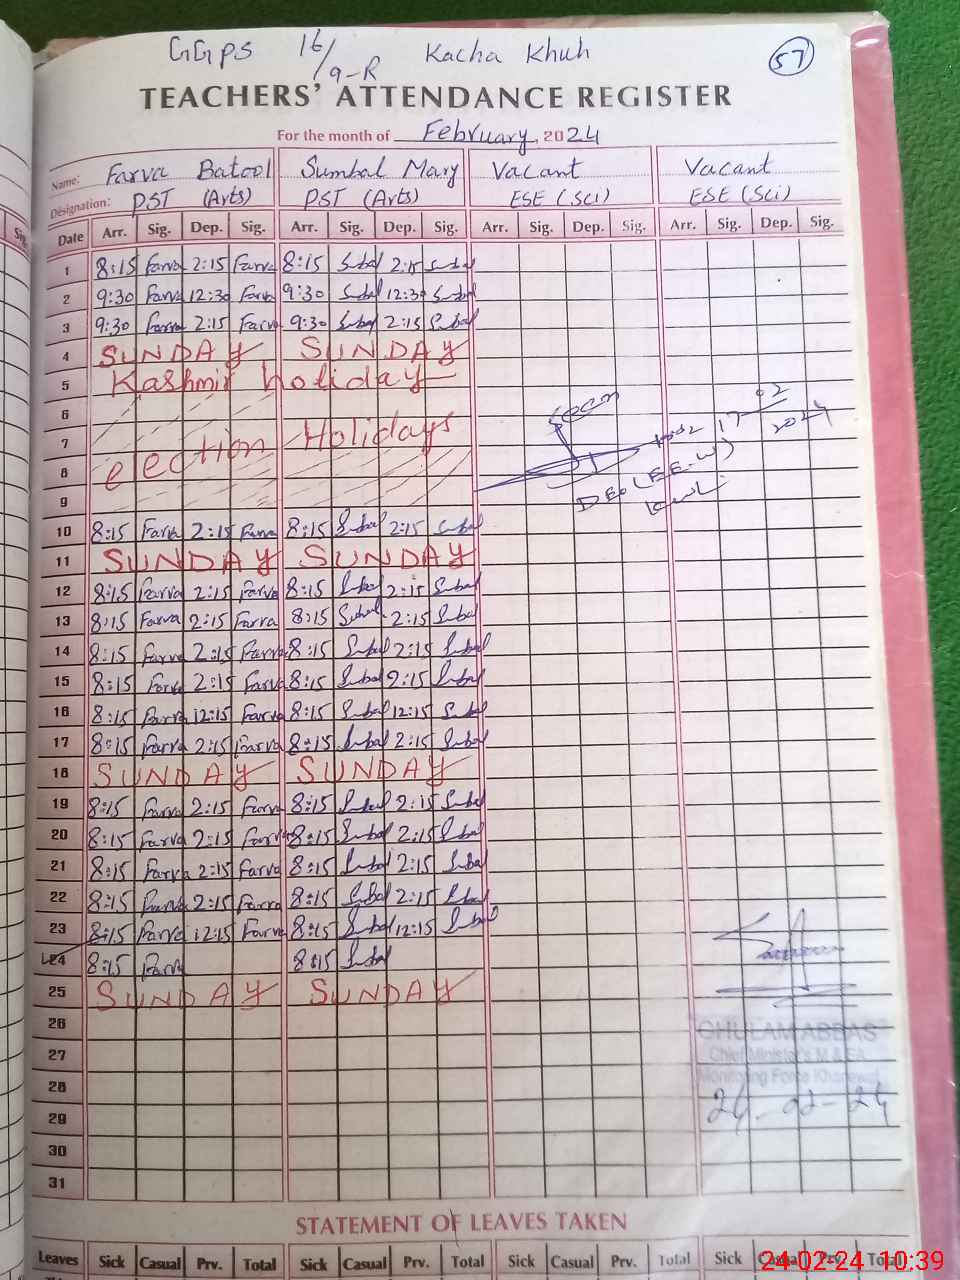 GGPS 16/9-R Kacha Khuh 57
TEACHERS' ATTENDANCE REGISTER
For the month of February 2024
Name: Farva Batool Sumbal Mary Vacant Vacant
Designation: PST (Arts) PST (Arts) ESE (Sci) ESE (Sci)
Date Arr. Sig. Dep. Sig. Arr. Sig. Dep. Sig. Arr. Sig. Dep. Sig. Arr. Sig. Dep. Sig.
1 8:15 Farva 2:15 Farva 8:15 Sumbal 2:15 Sumbal
2 9:30 Farva 12:30 Farva 9:30 Sumbal 12:30 Sumbal
3 9:30 Farva 2:15 Farva 9:30 Sumbal 2:15 Sumbal
4 SUNDAY SUNDAY
5 Kashmir holiday
6
7 election Holidays
8
9
10 8:15 Farva 2:15 Farva 8:15 Sumbal 2:15 Sumbal
11 SUNDAY SUNDAY
12 8:15 Farva 2:15 Farva 8:15 Sumbal 2:15 Sumbal
13 8:15 Farva 2:15 Farva 8:15 Sumbal 2:15 Sumbal
14 8:15 Farva 2:15 Farva 8:15 Sumbal 2:15 Sumbal
15 8:15 Farva 2:15 Farva 8:15 Sumbal 2:15 Sumbal
16 8:15 Farva 12:15 Farva 8:15 Sumbal 12:15 Sumbal
17 8:15 Farva 2:15 Farva 8:15 Sumbal 2:15 Sumbal
18 SUNDAY SUNDAY
19 8:15 Farva 2:15 Farva 8:15 Sumbal 2:15 Sumbal
20 8:15 Farva 2:15 Farva 8:15 Sumbal 2:15 Sumbal
21 8:15 Farva 2:15 Farva 8:15 Sumbal 2:15 Sumbal
22 8:15 Farva 2:15 Farva 8:15 Sumbal 2:15 Sumbal
23 8:15 Farva 12:15 Farva 8:15 Sumbal 12:15 Sumbal
24 8:15 Farva 8:15 Sumbal
25 SUNDAY SUNDAY
26
27
28
29
30
31
Seen
17-02
2024
DEO (EE-W)
GHULAM ABBAS
Chief Minister's M & EA
Monitoring Force Khanewal
24-02-24
STATEMENT OF LEAVES TAKEN
Leaves Sick Casual Prv. Total Sick Casual Prv. Total Sick Casual Prv. Total Sick Casual Prv. Total
24-02-24 10:39